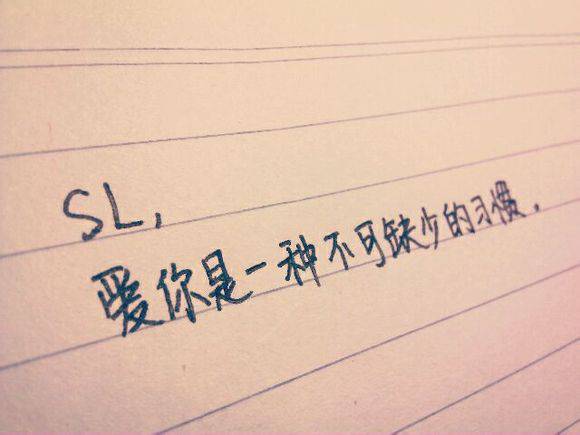 SL,
爱你是一种不可缺少的习惯.